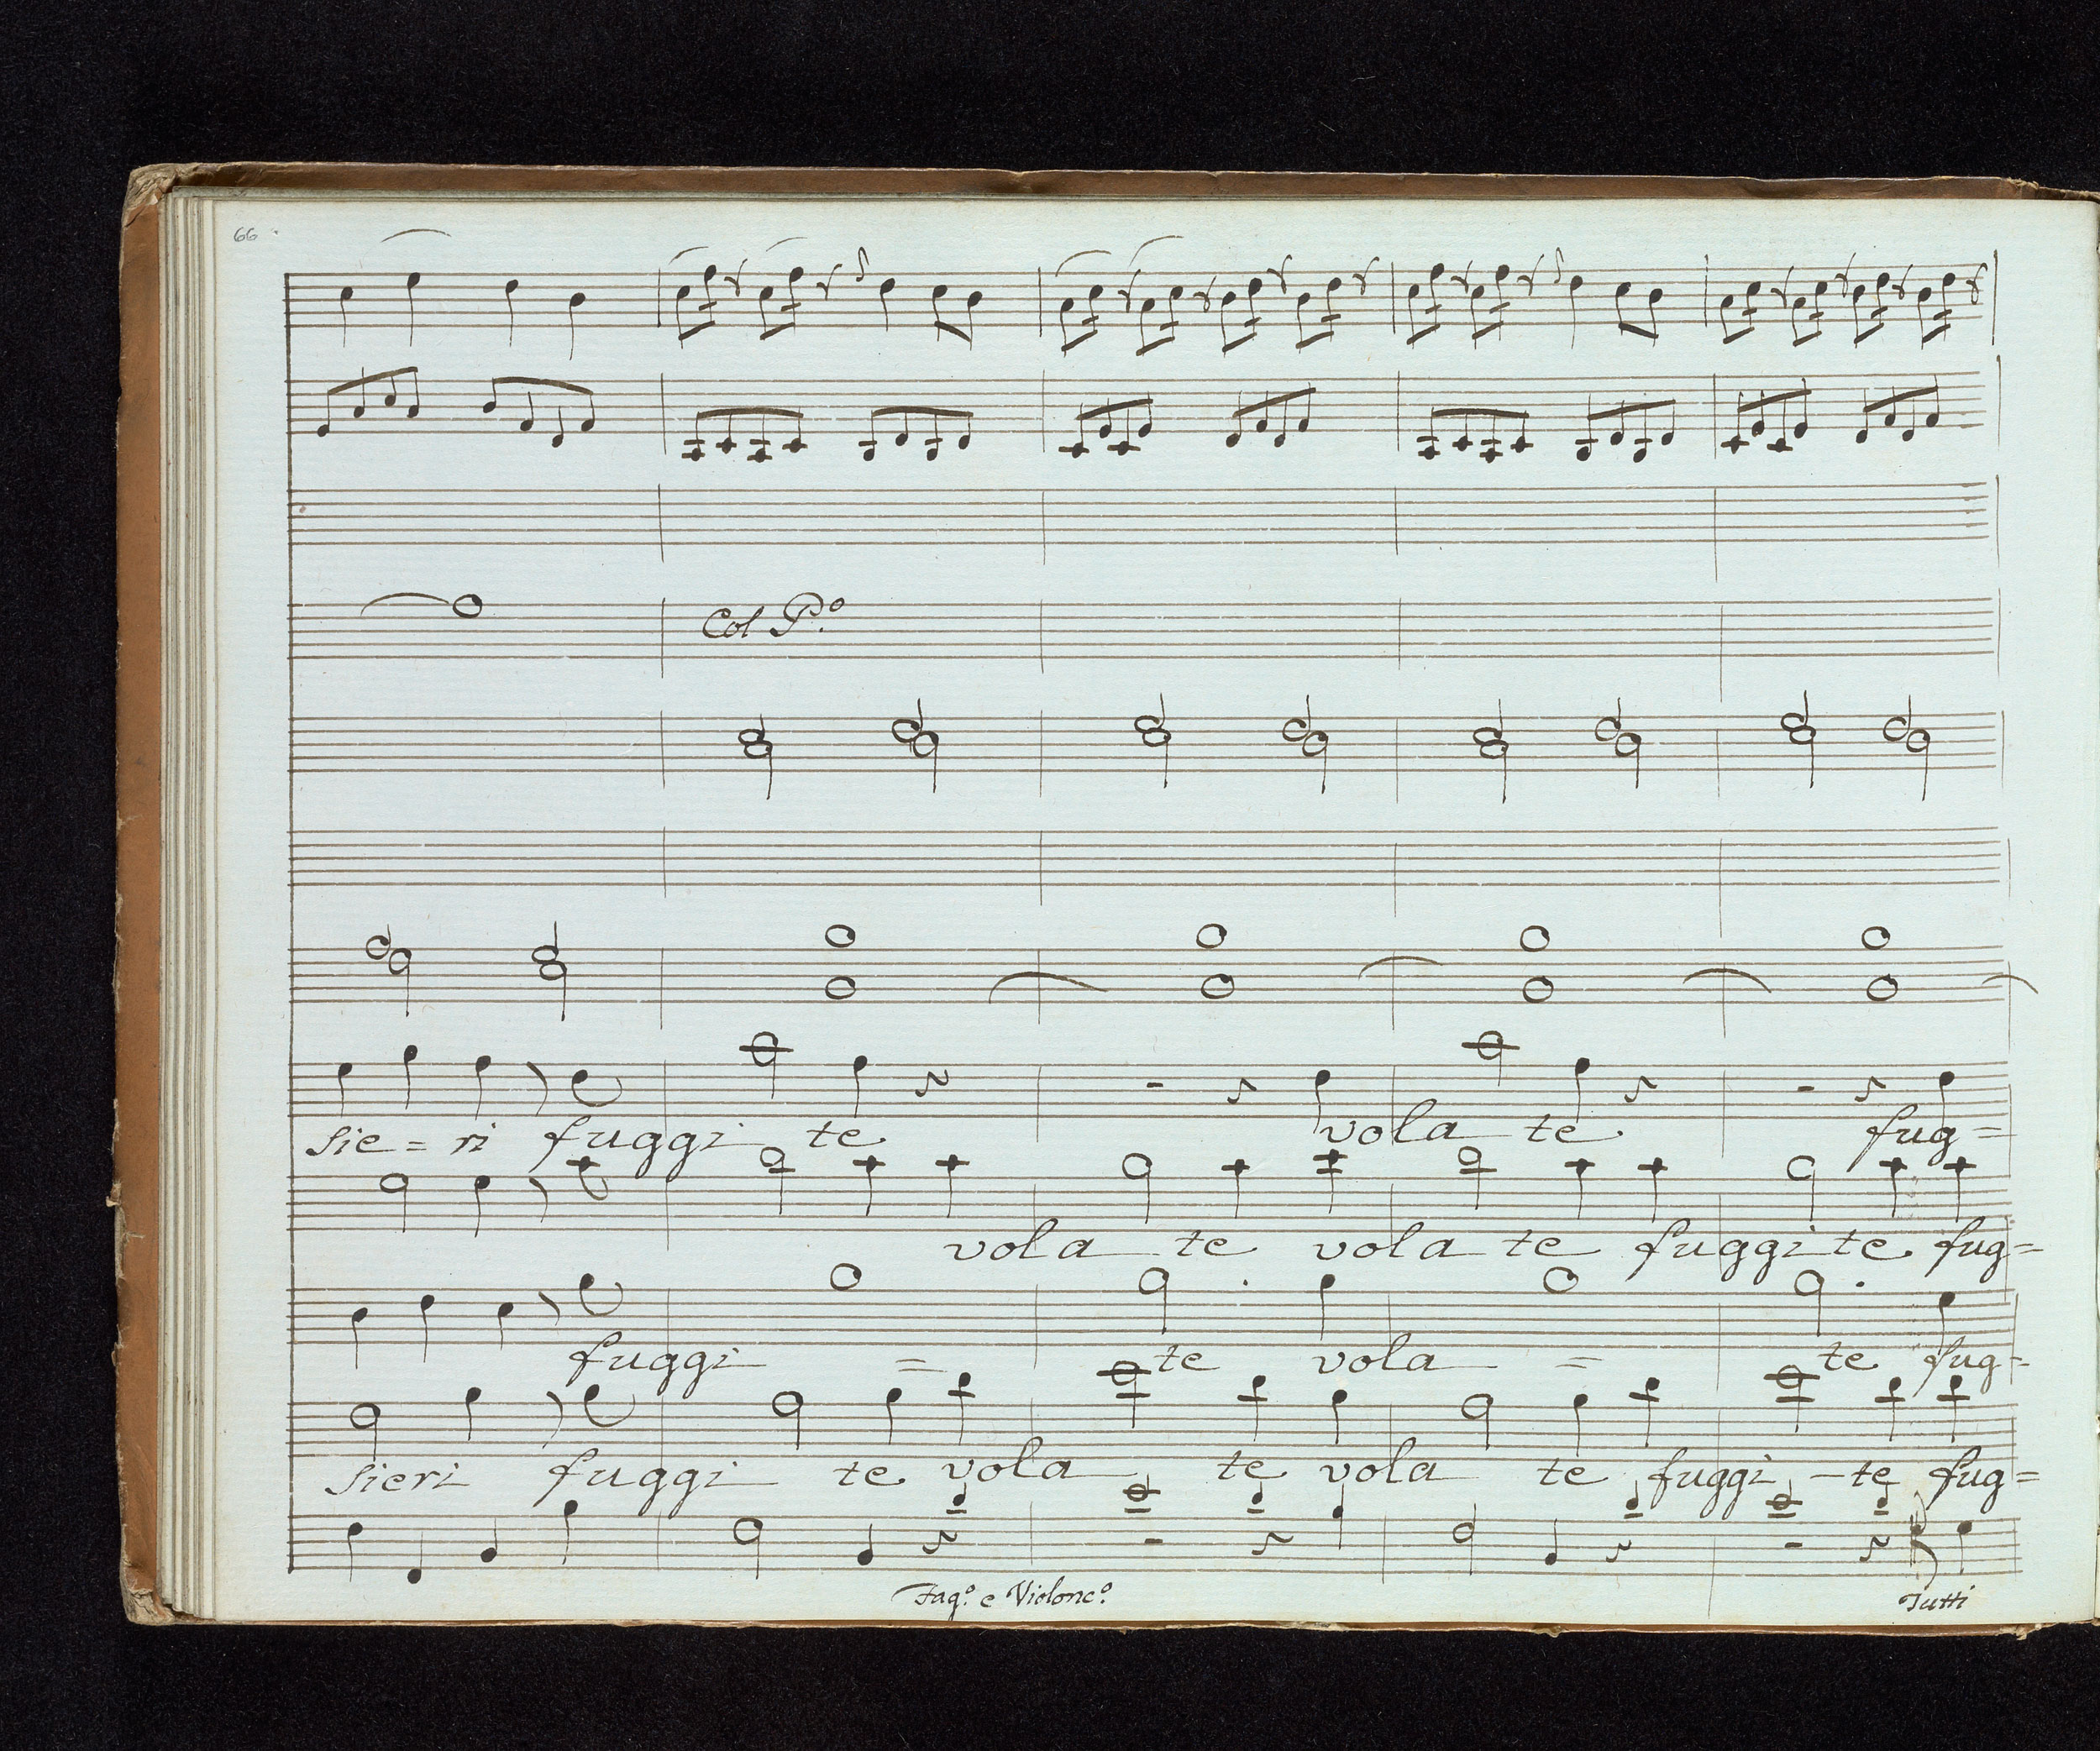 66
Col Pº
sie = ri fuggi te vola te fug=
vola te vola te fuggi te fug=
fuggi = te vola = te fug=
sieri fuggi te vola te vola te fuggi - te fug=
Fag.º e Violonc.º Tutti